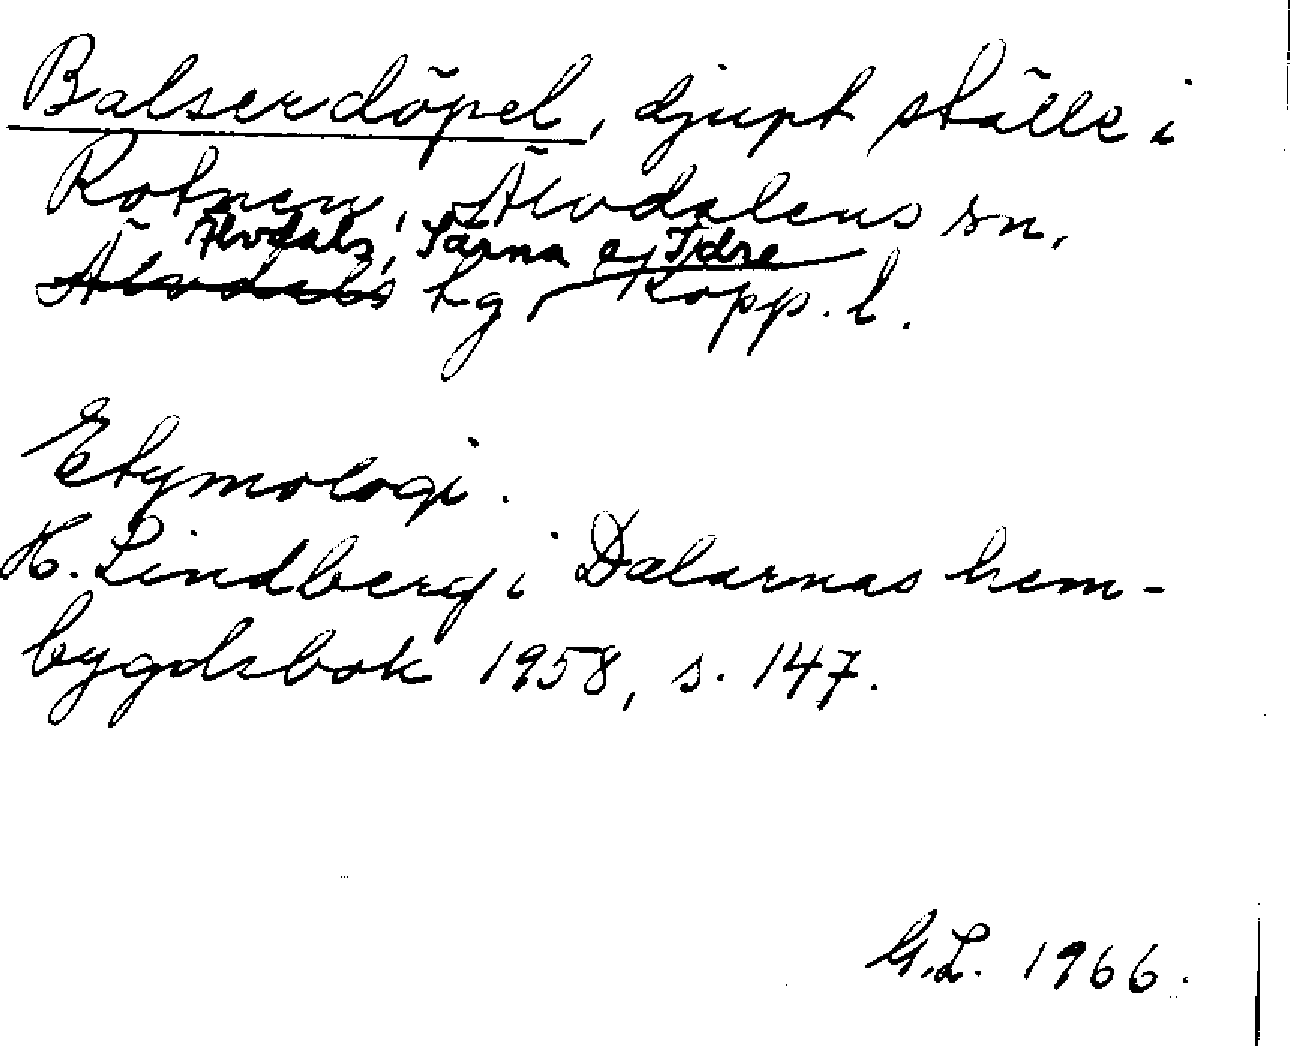 Balserdöpel, djupt ställe i
Rotnen, Älvdalens sn,
Älvdals, Särna o Idre
Älvdals tg, Kopp. l.
Etymologi.
H. Lindberg i Dalarnas hem-
bygdsbok 1958, s. 147.
G.L. 1966.